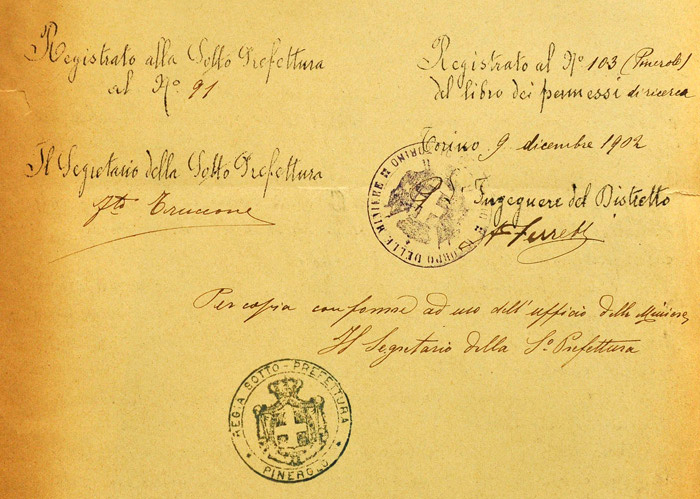 Registrato alla Sotto Prefettura
al N.º 91
Il Segretario della Sotto Prefettura
Registrato al Nº 103 (Pinerolo)
del libro dei permessi di ricerca
Torino 9 dicembre 1902
Ingegnere del Distretto
CORPO DELLE MINIERE TORINO
Per copia conforme ad uso dell'ufficio delle Miniere,
Il Segretario della Sº Prefettura
REGIA SOTTO-PREFETTURA
PINEROLO